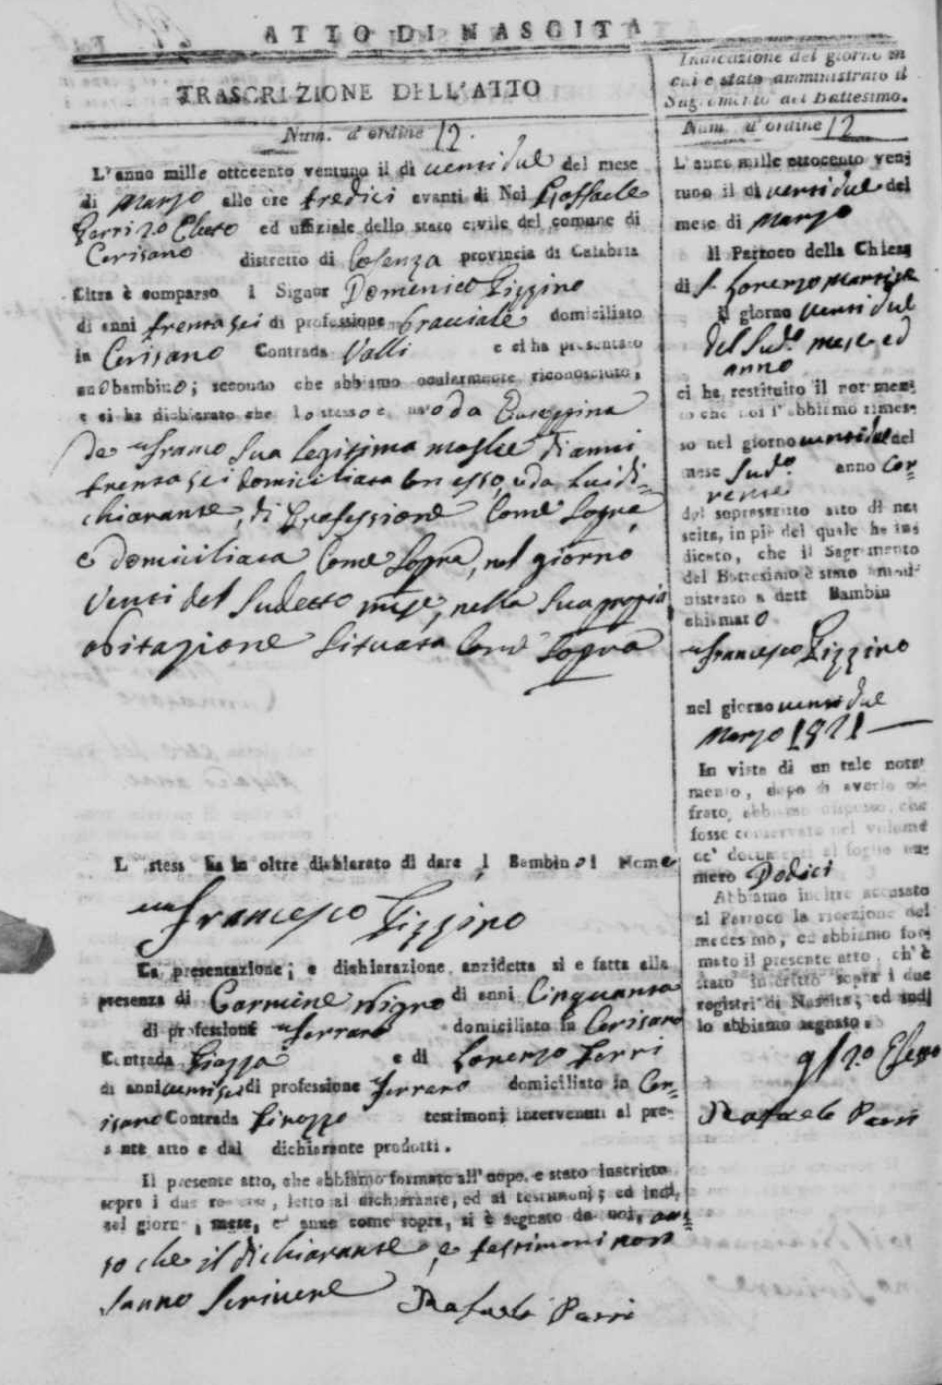 ATTO DI NASCITA
TRASCRIZIONE DELL'ATTO
Num. d'ordine 12.
L'anno mille ottocento ventuno il dì venti due del mese
di Marzo alle ore tredici avanti di Noi Raffaele
ed uffiziale dello stato civile del comune di
Cerisano distretto di Cosenza provincia di Calabria
Citra è comparso Signor Domenico Pizzino
di anni trenta sei di professione bracciale domiciliato
in Cerisano Contrada Valli e ci ha presentato
uno bambino; secondo che abbiamo ocularmente riconosciuto,
e ci ha dichiarato che lo stesso e nato da Giuseppina
De Franco sua legitima moglie di anni
trenta sei domiciliata con esso, e da lui di=
chiarante, di professione come sopra,
e domiciliata come sopra, nel giorno
venti del sudetto mese, nella sua propria
abitazione situata come sopra
L stess ha in oltre dichiarato di dare l Bambino il Nome
Francesco Pizzino
La presentazione; e dichiarazione anzidetta si e fatta alla
presenza di Carmine Nigro di anni Cinquanta
di professione Ferraro domiciliato in Cerisano
Contrada Piazza e di Lorenzo
di anni venti sei di professione Ferraro domiciliato in Ce=
risano Contrada Pirozzo testimonj intervenuti al pre-
sente atto e dal dichiarante prodotti.
Il presente atto, che abbiamo formato all'uopo, e stato inscritto
sopra i due registri, letto al dichiarante, ed ai testimonj; ed indi,
nel giorno, mese, e anno come sopra, si è segnato da noi,
so che il dichiarante, e testimoni non
sanno scrivere Rafaele Parri
Indicazione del giorno in
cui e stato amministrato il
Sagramento del Battesimo.
Num. d'ordine 12
L'anno mille ottocento vent
tuno il dì venti due del
mese di Marzo
Il Parroco della Chiesa
di S. Lorenzo Martire
il giorno venti due
del sud.o mese ed
anno
ci ha restituito il notamen
to che noi l'abbiamo rimes-
so nel giorno venti due del
mese sud.o anno Cor=
rente
del soprascritto atto di na-
scita, in piè del quale ha in-
dicato, che il Sagramento
del Battesimo è stato ammi-
nistrato a dett Bambin
chiamato
Francesco Pizzino
nel giorno venti due
Marzo 1821
In vista di un tale nota-
mento, dopo di averlo ci-
frato, abbiamo disposto, che
fosse conservato nel volume
de' documenti al foglio nu-
mero Dodici
Abbiamo inoltre accusato
al Parroco la ricezione del
medesimo, ed abbiamo for-
mato il presente atto, ch'è
stato inscritto sopra i due
registri di Nascita, ed indi
lo abbiamo segnato.
Rafaele Parri